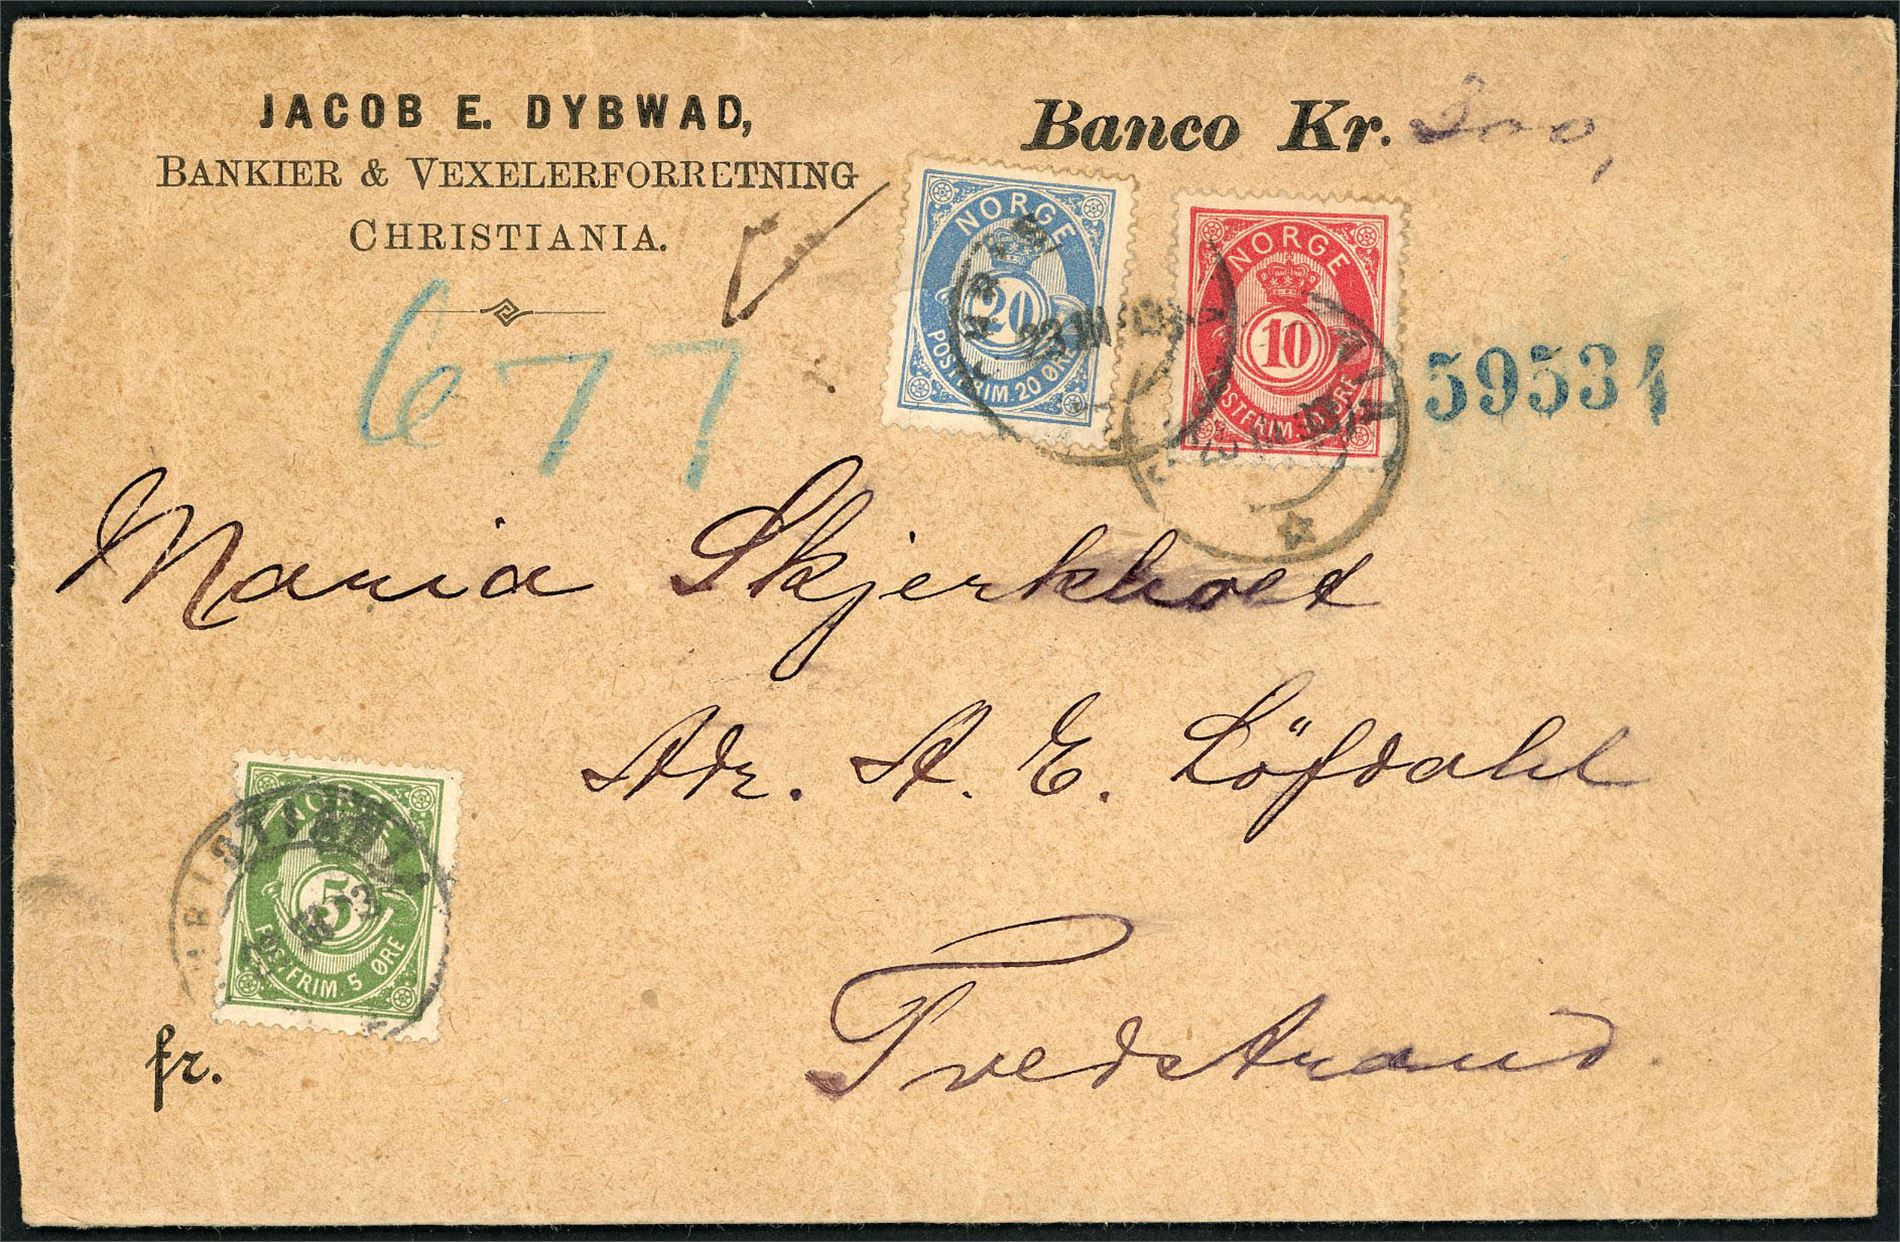 JACOB E. DYBWAD,
BANKIER & VEXELERFORRETNING
CHRISTIANIA.
Banco Kr.
NORGE
20
POSTFRIM. 20 ØRE
NORGE
10
POSTFRIM. 10 ØRE
59534
677
Maria Skjerkholt
Adr. A. E. Löfdahl
Tvedstrand.
NORGE
5
POSTFRIM. 5 ØRE
fr.